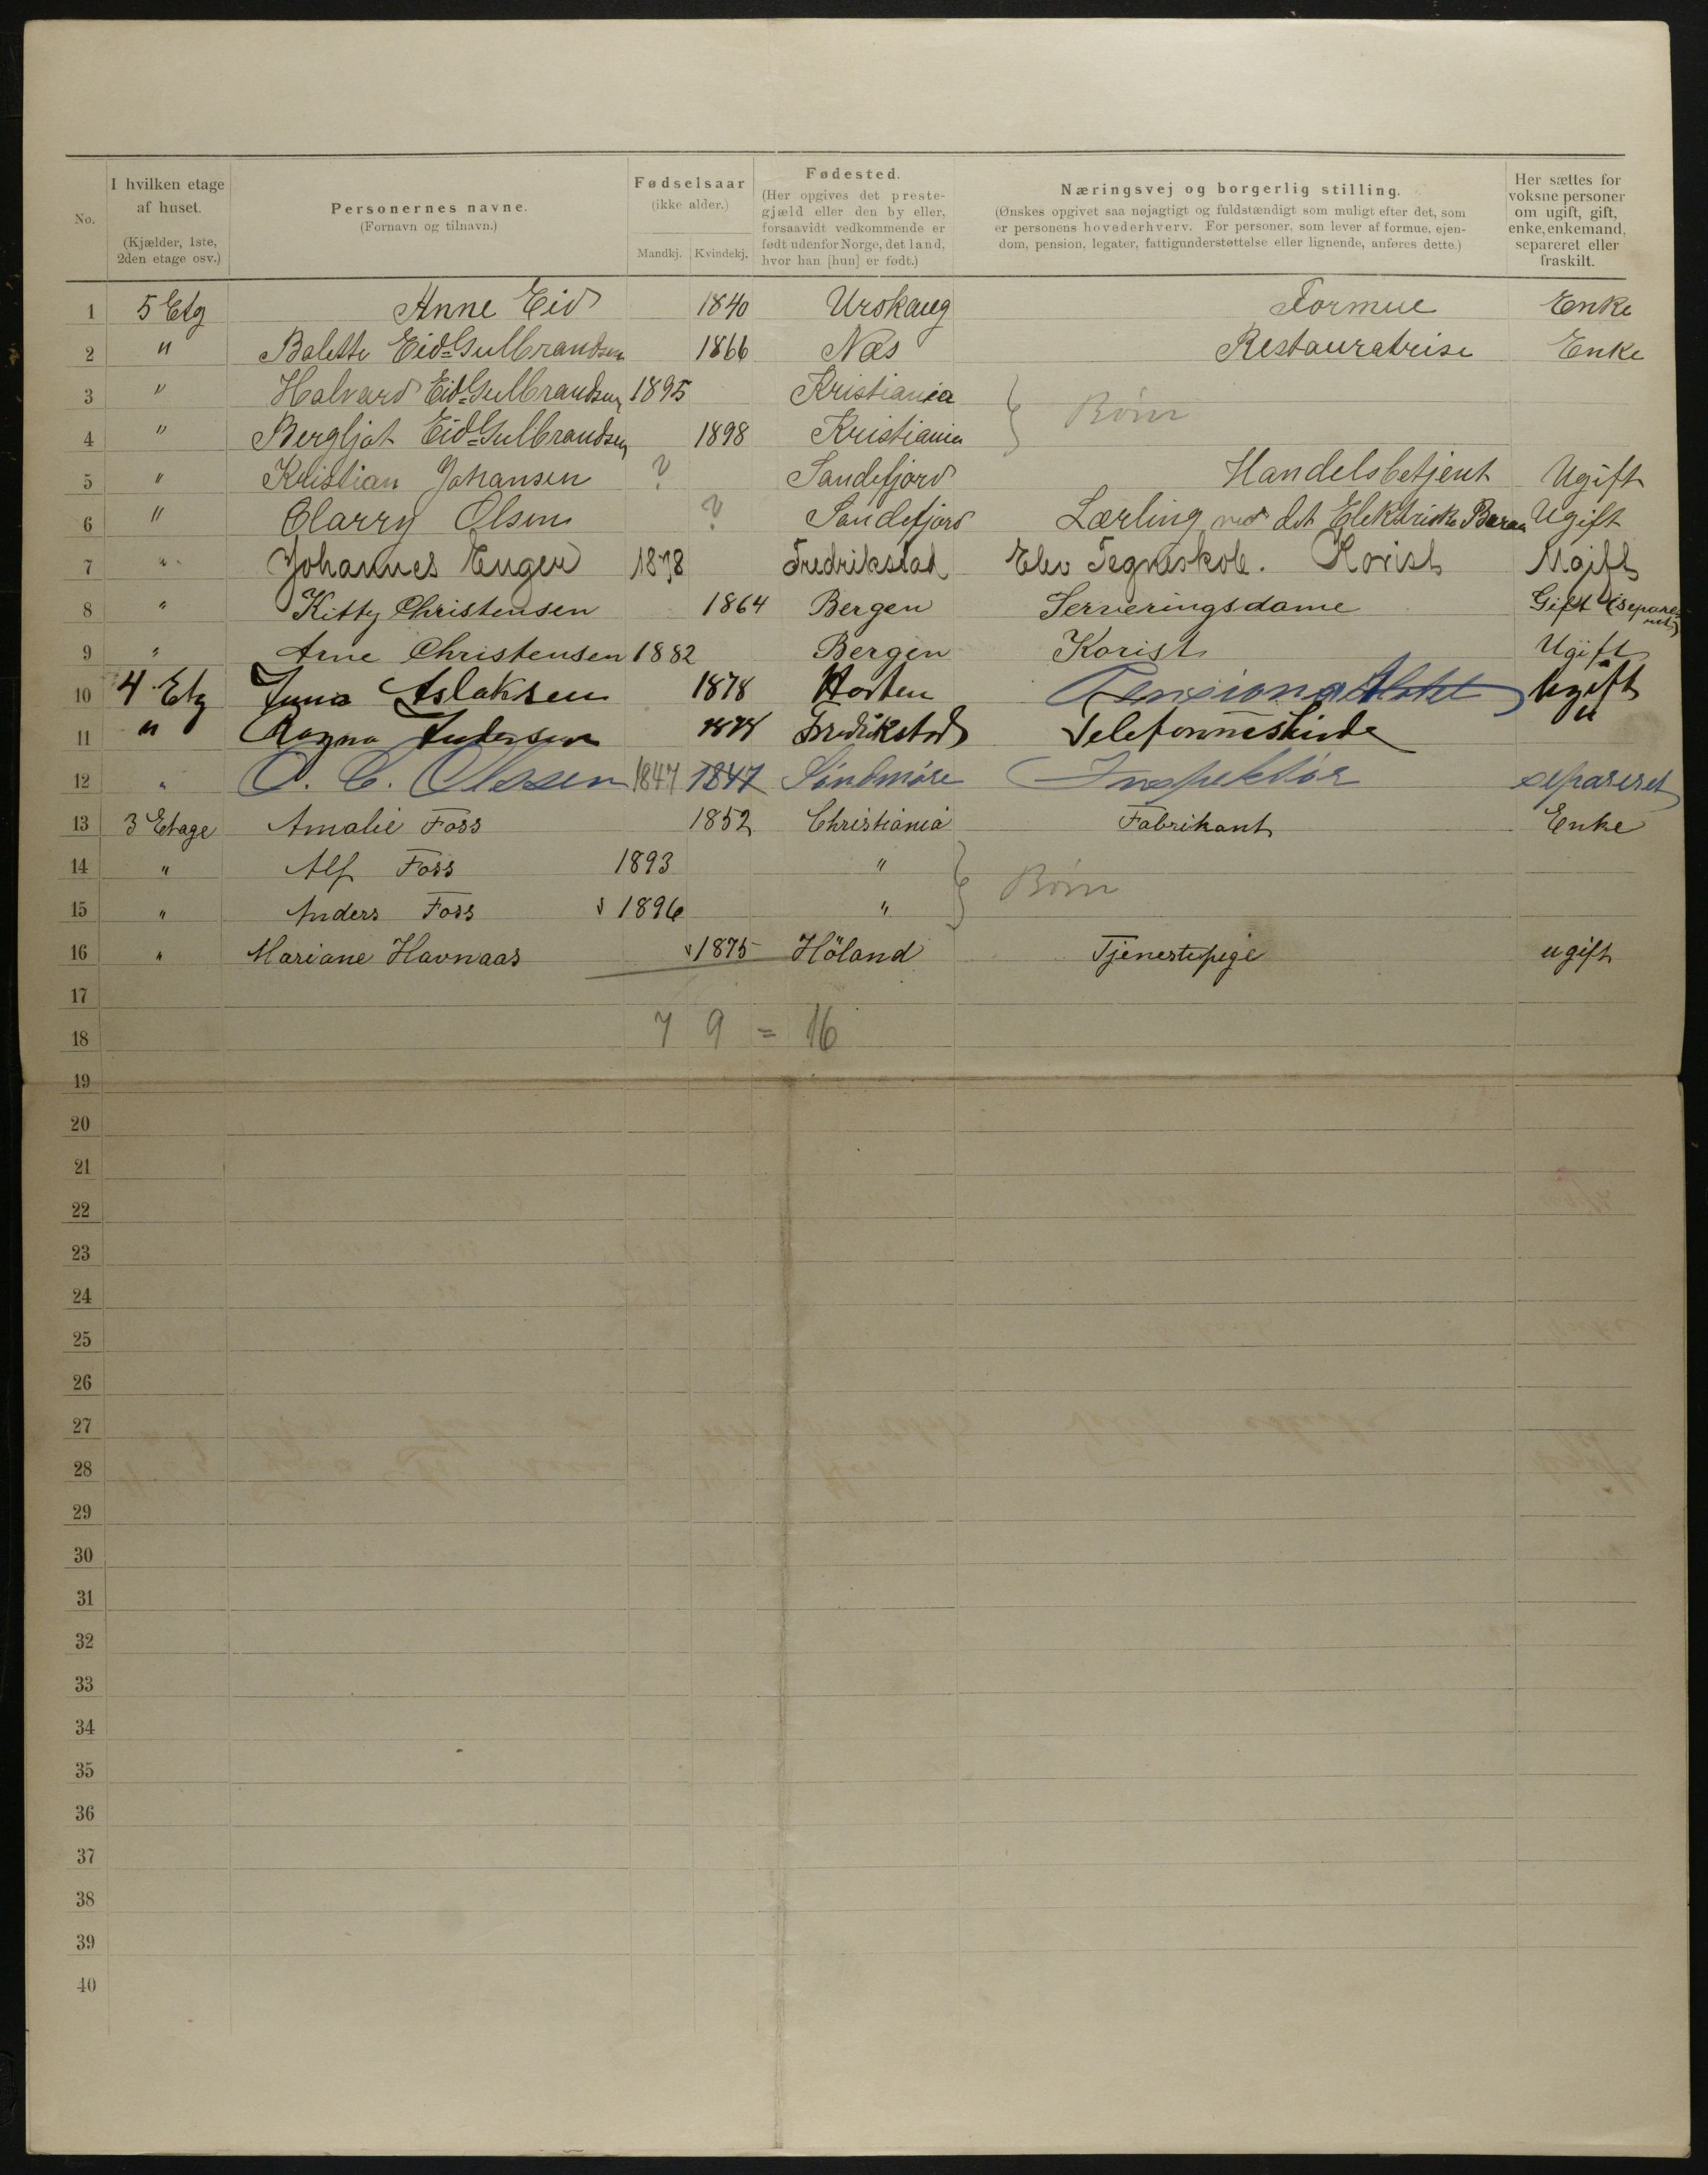 No.
I hvilken etage af huset.
(Kjælder, 1ste, 2den etage osv.)
Personernes navne.
(Fornavn og tilnavn.)
Fødselsaar
(ikke alder.)
Mandkj. Kvindekj.
Fødested.
(Her opgives det præstegjæld eller den by eller, forsaavidt vedkommende er født udenfor Norge, det land, hvor han [hun] er født.)
Næringsvej og borgerlig stilling.
(Ønskes opgivet saa nøjagtigt og fuldstændigt som muligt efter det, som er personens hovederhverv. For personer, som lever af formue, ejendom, pension, legater, fattigunderstøttelse eller lignende, anføres dette.)
Her sættes for voksne personer om ugift, gift, enke, enkemand, separeret eller fraskilt.
1 5 Etg Anne Eid 1840 Urskaug Formue Enke
2 " Balette Eid=Gulbrandsen 1866 Næs Restauratrise Enke
3 " Halvard Eid=Gulbrandsen 1895 Kristiania } Børn
4 " Bergljot Eid=Gulbrandsen 1898 Kristiania
5 " Kristian Johansen ? Sandefjord Handelsbetjent Ugift
6 " Olsen ? Sandefjord Lærling ved det Elektriske Ugift
7 " Johannes Enger 1878 Fredrikstad Elev Tegneskole. Korist Ugift
8 " Kitty Christensen 1864 Bergen Serveringsdame Gift (separeret)
9 " Arne Christensen 1882 Bergen Korist Ugift
10 4 Etg Aslaksen 1878 Horten Ugift
11 " Ragna Andersen Fredrikstad Telefonistinde "
12 " O. C. Olesen 1847 1847 Søndmøre Inspektør separeret
13 3 Etage Amalie Foss 1852 Christiania Fabrikant Enke
14 " Alf Foss 1893 " } Børn
15 " Anders Foss 1896 "
16 " Mariane Havnaas 1875 Höland Tjenestepige ugift
17
18 7 9 = 16
19
20
21
22
23
24
25
26
27
28
29
30
31
32
33
34
35
36
37
38
39
40